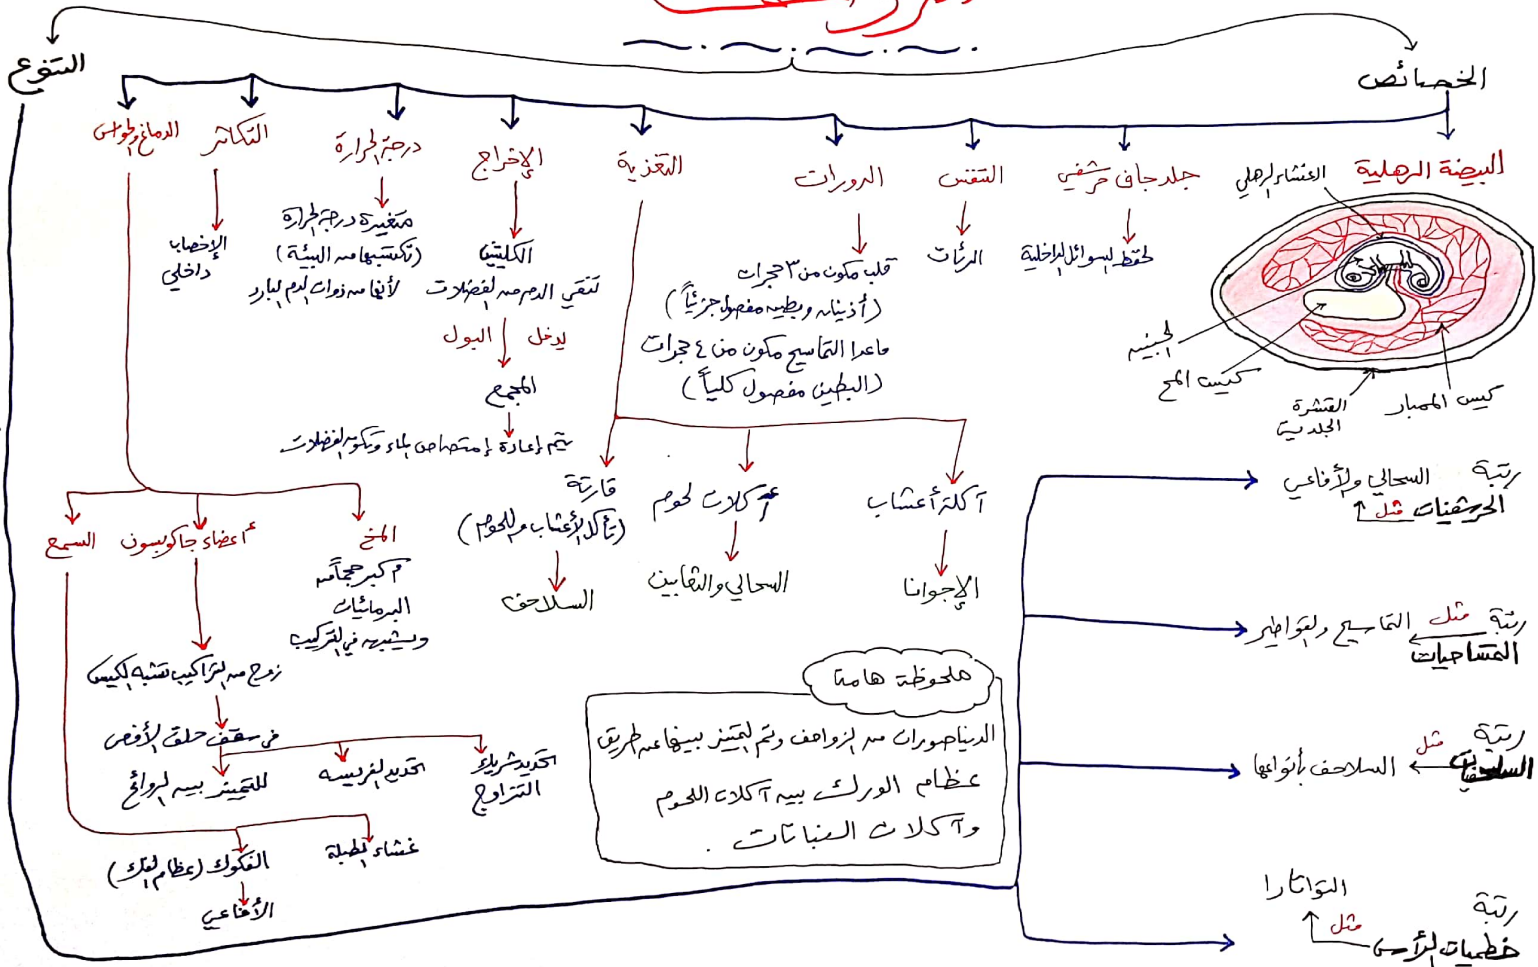 الخصائص
التنوع
البيضة الرهلية
الغشاء الرهلي
الجنين
كيس المح
القشرة
الجلدية
كيس الممبار
جلد جاف حرشفي
لحفظ السوائل الداخلية
التنفس
الرئات
الدورات
قلب مكون من ٣ حجرات
(أذينان وبطين مفصول جزئياً)
ماعدا التماسيح مكون من ٤ حجرات
(البطين مفصول كلياً)
التغذية
آكلة أعشاب
الإجوانا
آكلات لحوم
السحالي والثعابين
قارتة
(تأكل الأعشاب واللحوم)
السلاحف
الإخراج
الكليتين
تنقي الدم من الفضلات
يدخل البول
المجمع
يتم إعادة إمتصاص الماء وتكون الفضلات
درجة الحرارة
متغيرة درجة الحرارة
(تكتسبها من البيئة)
لأنها من ذوات الدم البارد
التكاثر
الإخصاب
داخلي
الدماغ والحواس
المخ
أكبر حجماً من
البرمائيات
ويشبهه في التركيب
أعضاء جاكوبسون
زوج من التراكيب تشبه الكيس
في سقف حلق الأفعى
للتمييز بين الروائح
تحديد الفريسه
تحديد شريك
التزاوج
السمع
غشاء الطبلة
الفكوك (عظام الفك)
الأفاعي
ملحوظة هامة
الديناصورات من الزواحف وتم التمييز بينها عن طريق
عظام الورك بين آكلات اللحوم
وآكلات النباتات .
رتبة
الحرشفيات مثل
السحالي والأفاعي
رتبة
التمساحيات
مثل
التماسيح والقواطير
رتبة
السلحفيات
مثل
السلاحف بأنواعها
رتبة
خطميات الرأس
مثل
التواتارا